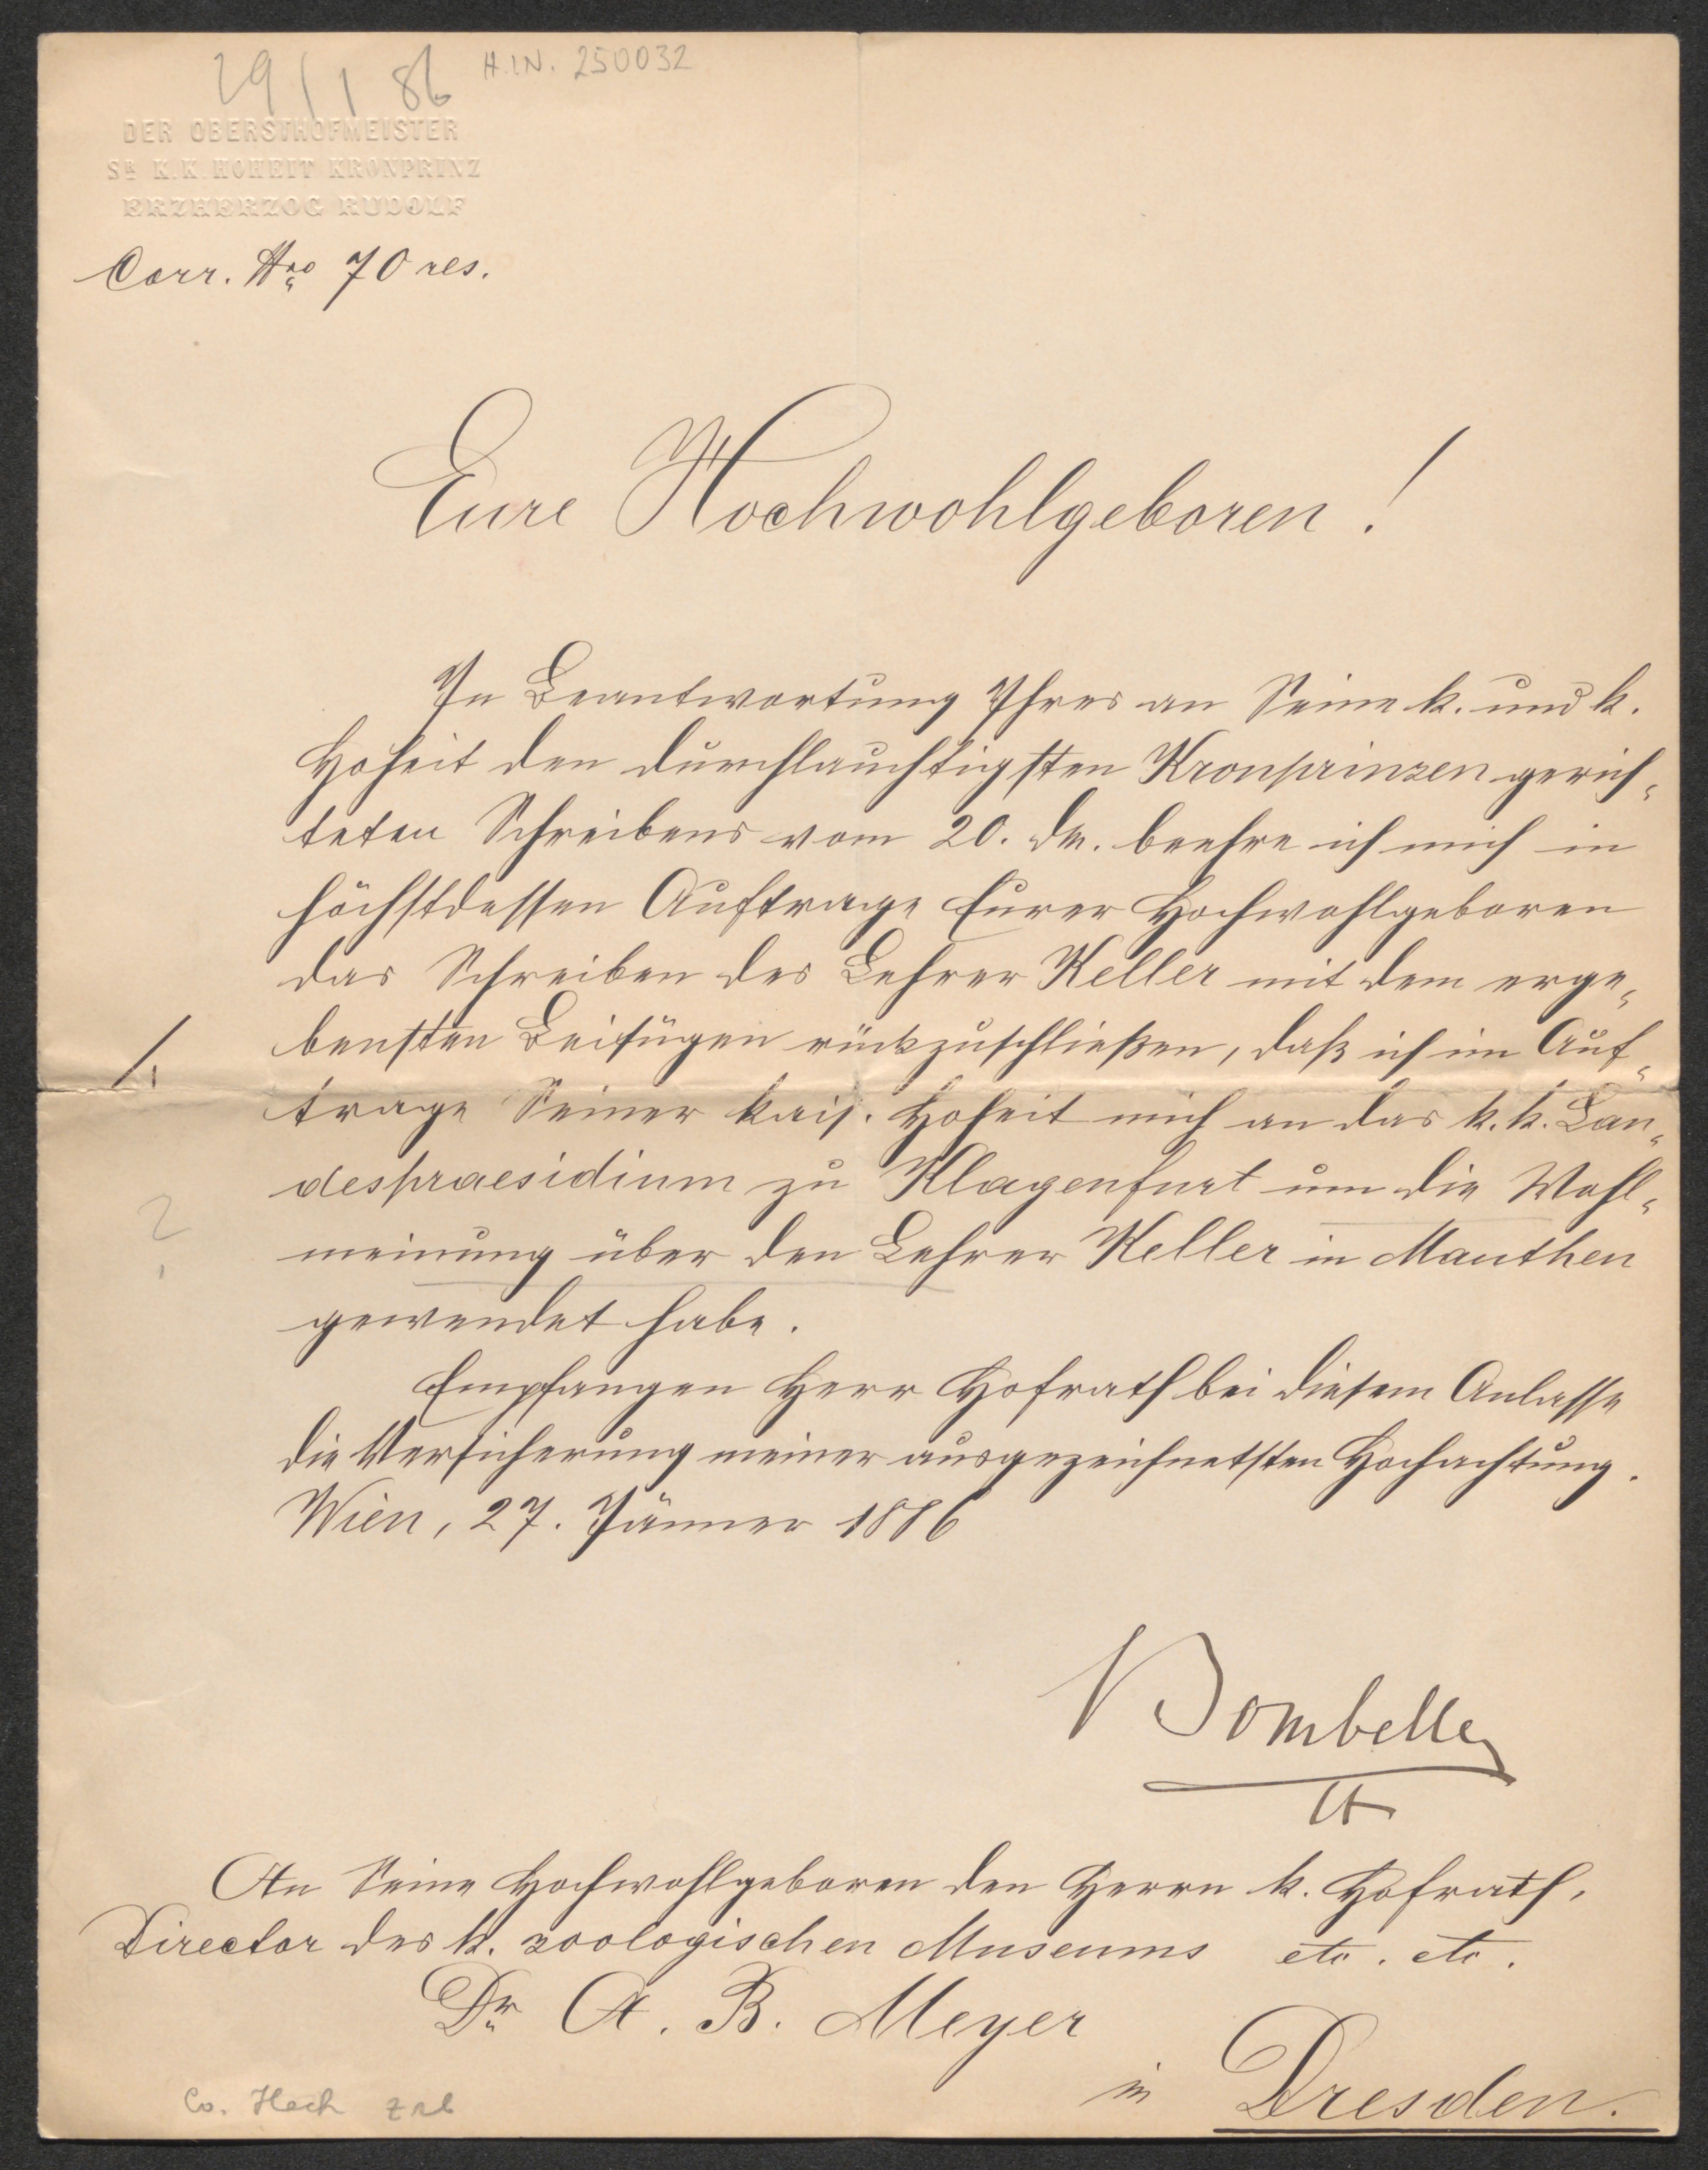 29/1 86 H.I.N. 250032
DER OBERSTHOFMEISTER
SR K. K. HOHEIT KRONPRINZ
ERZHERZOG RUDOLF
Corr. Nro 70 res.
Eure Hochwohlgeboren!
In Beantwortung Ihres an Seine k. und k.
Hoheit den durchlauchtigsten Kronprinzen gerich-
teten Schreibens vom 20. dM. beehre ich mich in
höchstdessen Auftrage Eurer Hochwohlgeboren
das Schreiben des Lehrer Keller mit dem erge-
bensten Beifügen rückzuschließen, daß ich im Auf-
/.
trage Seiner kais. Hoheit mich an das k. k. Lan-
despraesidium zu Klagenfurt um die Wohl-
?
meinung über den Lehrer Keller in Mauthen
gewendet habe.
Empfangen Herr Hofrath bei diesem Anlasse
die Versicherung meiner ausgezeichnetsten Hochachtung.
Wien, 27. Jänner 1886
Bombelles
An Seine Hochwohlgeboren den Herrn k. Hofrath,
Director des k. zoologischen Museums etc. etc.
Dr. A. B. Meyer
in Dresden.